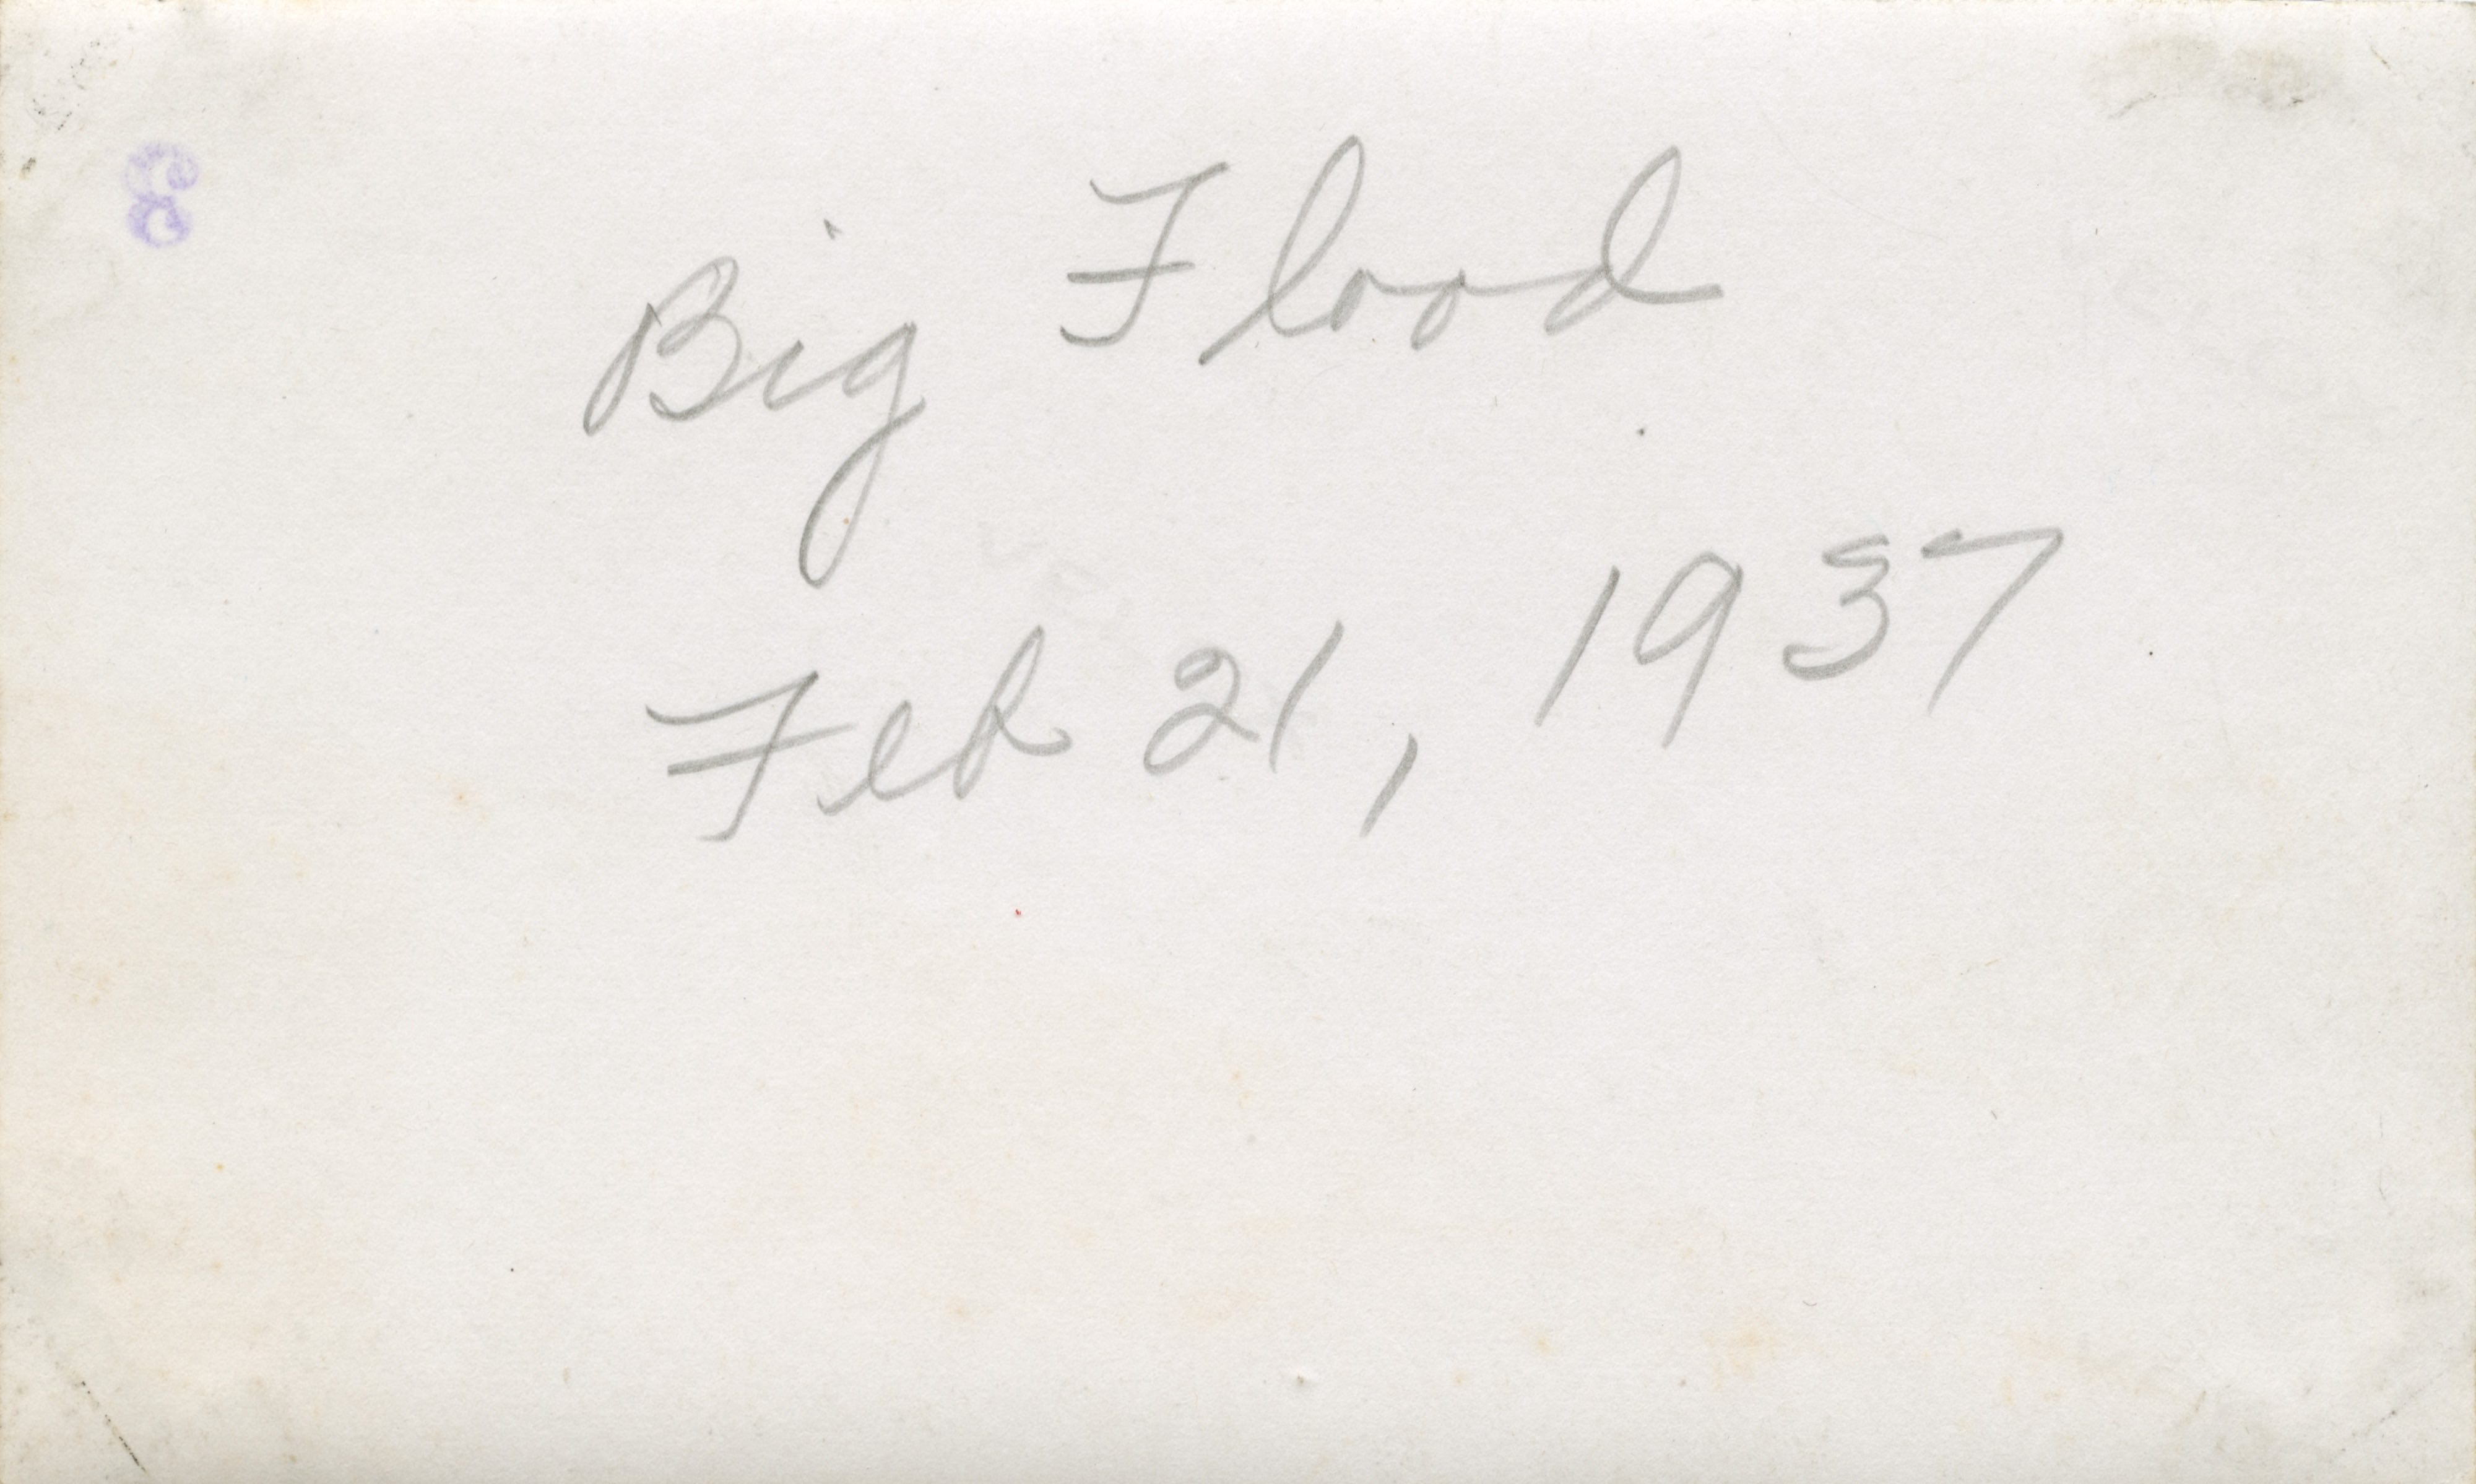 Big Flood
Feb 21, 1937